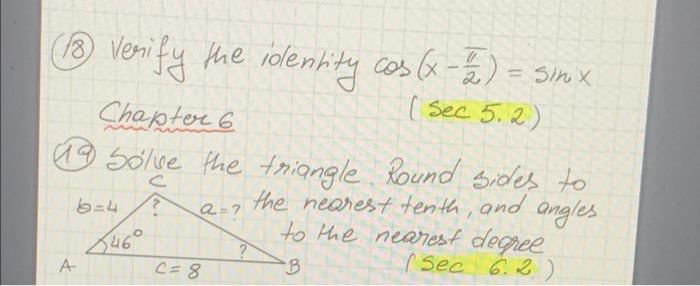 (18) Verify the identity cos(x - π/2) = sin x
(sec 5.2)
Chapter 6
(19) Solve the triangle. Round sides to
the nearest tenth, and angles
to the nearest degree
(sec 6.2)
C
b=4 ? a=?
46° ?
A c=8 B